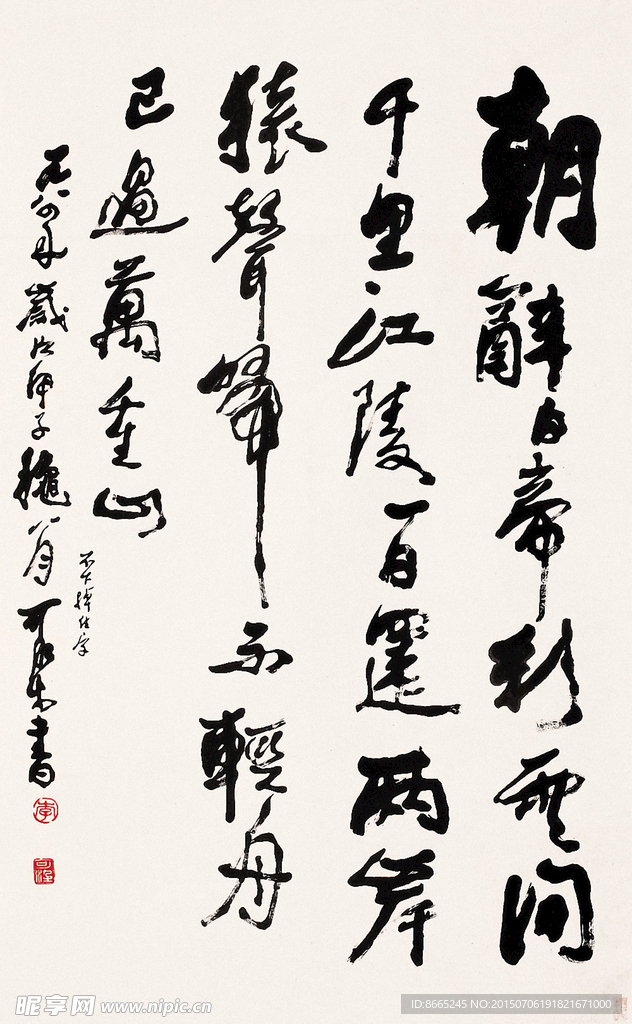 朝辭白帝彩雲間
千里江陵一日還兩岸
猿聲啼不輕舟
已過萬重山
不下掉住字
一九八四年歲次甲子穐八月可染書
李
可染
昵享网 www.nipic.cn
ID:8665245 NO:20150706191821671000